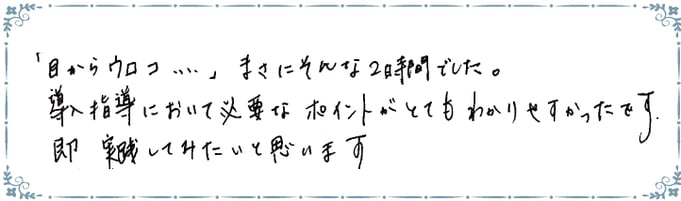 「目からウロコ….」まさにそんな2時間でした。
導入指導において必要なポイントがとてもわかりやすかったです.
即 実践してみたいと思います